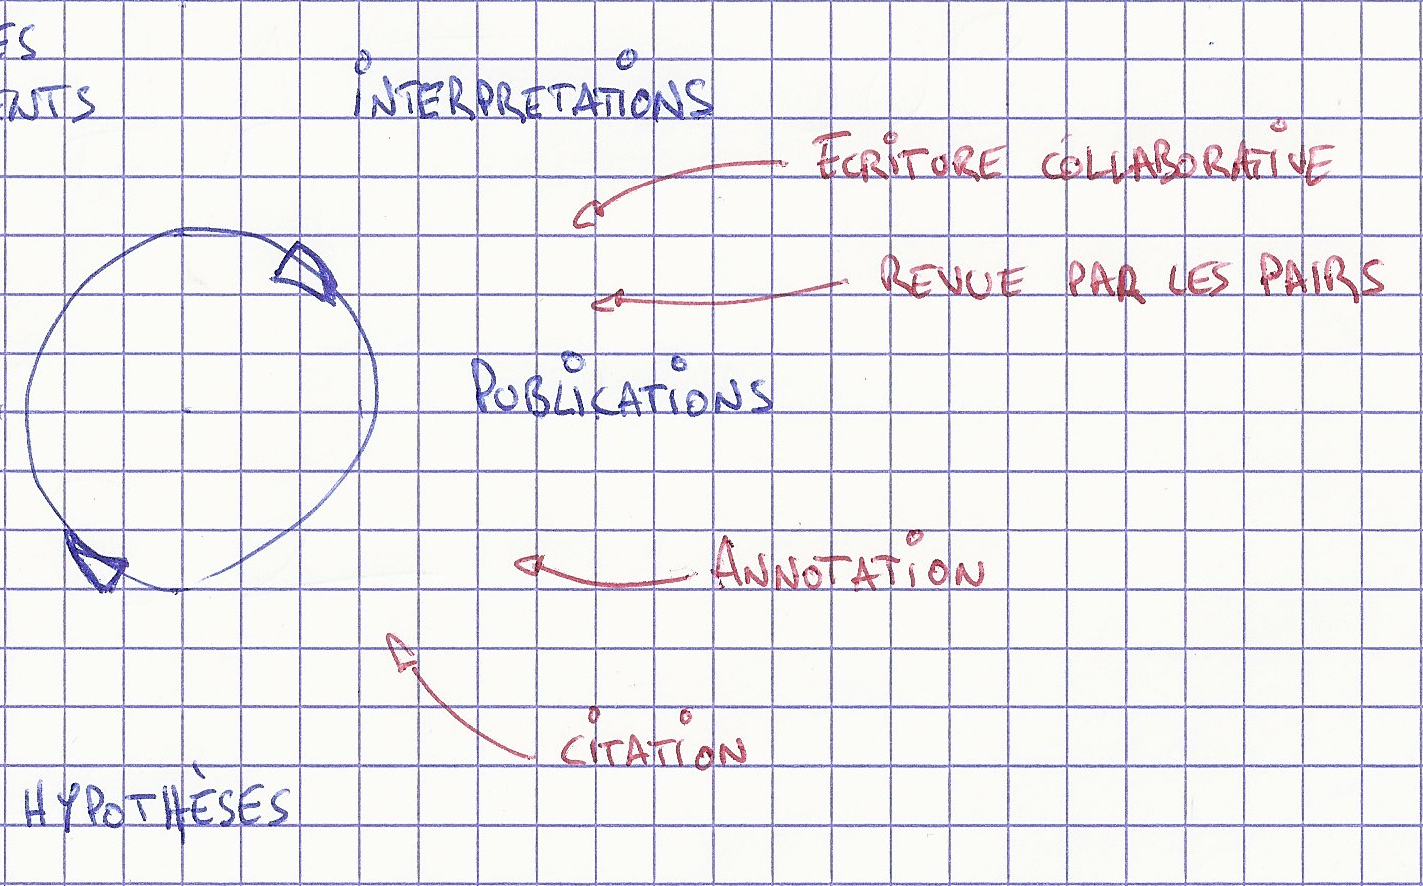 ES
ENTS
INTERPRETATIONS
ECRITURE COLLABORATIVE
REVUE PAR LES PAIRS
PUBLICATIONS
ANNOTATION
CITATION
HYPOTHÈSES